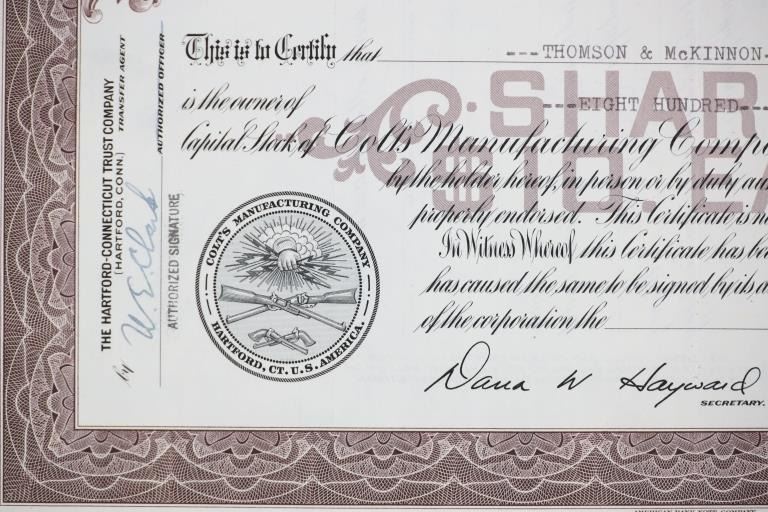 This is to Certify that ---THOMSON & McKINNON-
is the owner of ---EIGHT HUNDRED---
SHAR
$10. EA
Capital Stock of Colt's Manufacturing Compa
by the holder hereof, in person or by duly au
properly endorsed. This Certificate is n
In Witness Whereof this Certificate has be
has caused the same to be signed by its d
of the corporation the
Dana W Hayward
SECRETARY.
COLT'S MANUFACTURING COMPANY
HARTFORD, CT. U.S. AMERICA.
THE HARTFORD-CONNECTICUT TRUST COMPANY
(HARTFORD, CONN.) TRANSFER AGENT
by W. E. Clark
AUTHORIZED OFFICER
AUTHORIZED SIGNATURE
AMERICAN BANK NOTE COMPANY